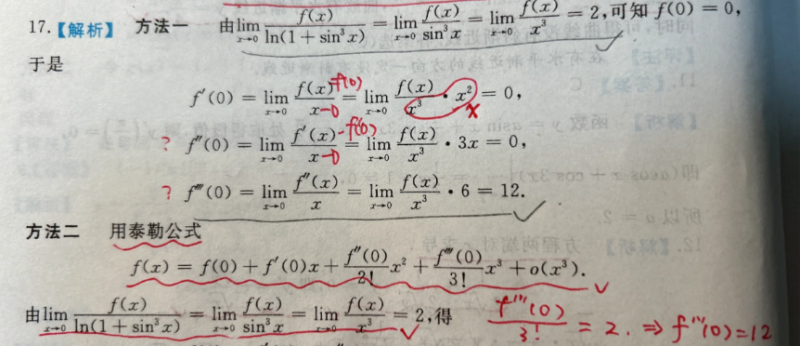 17.【解析】 方法一 由lim_{x→0} f(x)/ln(1+sin³x) = lim_{x→0} f(x)/sin³x = lim_{x→0} f(x)/x³ = 2,可知 f(0)=0,
于是
f′(0) = lim_{x→0} f(x)-f(0)/x-0 = lim_{x→0} f(x)/x³ · x² = 0, x
? f″(0) = lim_{x→0} f′(x)-f′(0)/x-0 = lim_{x→0} f(x)/x³ · 3x = 0,
? f‴(0) = lim_{x→0} f″(x)/x = lim_{x→0} f(x)/x³ · 6 = 12.
方法二 用泰勒公式
f(x) = f(0) + f′(0)x + f″(0)/2! x² + f‴(0)/3! x³ + o(x³).
由lim_{x→0} f(x)/ln(1+sin³x) = lim_{x→0} f(x)/sin³x = lim_{x→0} f(x)/x³ = 2,得 f‴(0)/3! = 2. ⇒ f‴(0)=12